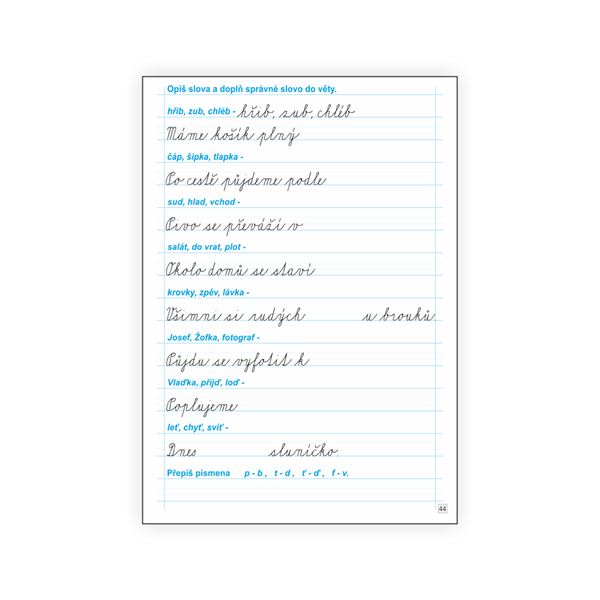 Opiš slova a doplň správné slovo do věty.
hřib, zub, chléb - hřib, zub, chléb
Máme košík plný
čáp, šipka, tlapka -
Po cestě půjdeme podle
sud, hlad, vchod -
Pivo se převáží v
salát, do vrat, plot -
Okolo domů se staví
krovky, zpěv, lávka -
Všimni si rudých u brouků
Josef, Žofka, fotograf -
Půjdu se vyfotit k
Vlaďka, přijď, loď -
Poplujeme
leť, chyť, sviť -
Dnes sluníčko.
Přepiš písmena p - b , t - d , ť - ď , f - v.
44